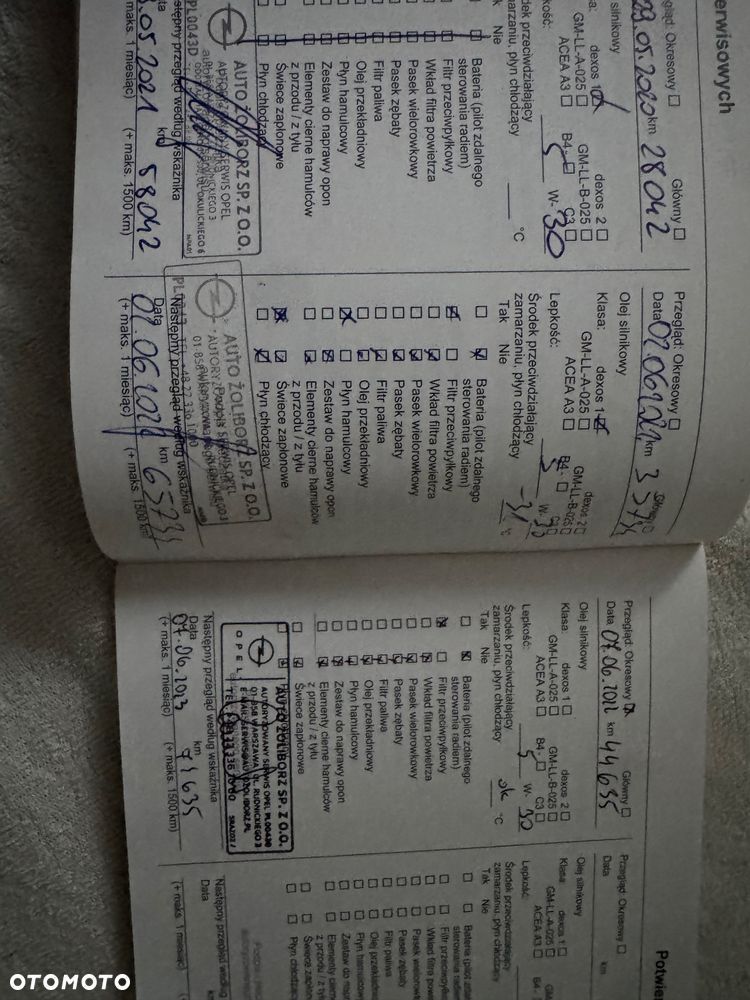 erwisowych
Przegląd: Okresowy ☐ Główny ☐
28.05.2020 km 28042
Olej silnikowy
dexos 1 dexos 2 ☐
GM-LL-A-025 ☐ GM-LL-B-025 ☐
ACEA A3 ☐ B4- C3 ☐
Lepkość: 5 W- 30
Środek przeciwdziałający
zamarzaniu, płyn chłodzący °C
Nie
Bateria (pilot zdalnego
sterowania radiem)
Filtr przeciwpyłkowy
Wkład filtra powietrza
Pasek wielorowkowy
Pasek zębaty
Filtr paliwa
Olej przekładniowy
Płyn hamulcowy
Zestaw do naprawy opon
Elementy cierne hamulców
z przodu / z tyłu
Świece zapłonowe
Płyn chłodzący
AUTO ŻOLIBORZ SP. Z O.O.
następny przegląd według wskaźnika
Data km
.05.2021 58042
maks. 1 miesiąc) (+ maks. 1500 km)
Przegląd: Okresowy ☐ Główny ☐
Data km
Olej silnikowy
Klasa: dexos 1 dexos 2 ☐
GM-LL-A-025 ☐ GM-LL-B-025 ☐
ACEA A3 ☐ B4- ☐ C3
Lepkość: 5 W- 30
Środek przeciwdziałający
zamarzaniu, płyn chłodzący -31 °C
Tak Nie
Bateria (pilot zdalnego
sterowania radiem)
Filtr przeciwpyłkowy
Wkład filtra powietrza
Pasek wielorowkowy
Pasek zębaty
Filtr paliwa
Olej przekładniowy
Płyn hamulcowy
Zestaw do naprawy opon
Elementy cierne hamulców
z przodu / z tyłu
Świece zapłonowe
Płyn chłodzący
AUTO ŻOLIBORZ SP. Z O.O.
Następny przegląd według wskaźnika
Data km
(+ maks. 1 miesiąc) (+ maks. 1500 km)
Przegląd: Okresowy ☒ Główny ☐
Data 07.06.2022 km 44635
Olej silnikowy
Klasa: dexos 1 ☐ dexos 2 ☐
GM-LL-A-025 ☐ GM-LL-B-025 ☐
ACEA A3 ☐ B4- ☐ C3 ☐
Lepkość: 5 W- 30
Środek przeciwdziałający
zamarzaniu, płyn chłodzący ok °C
Tak Nie
Bateria (pilot zdalnego
sterowania radiem)
Filtr przeciwpyłkowy
Wkład filtra powietrza
Pasek wielorowkowy
Pasek zębaty
Filtr paliwa
Olej przekładniowy
Płyn hamulcowy
Zestaw do naprawy opon
Elementy cierne hamulców
z przodu / z tyłu
Świece zapłonowe
OPEL
AUTO ŻOLIBORZ SP. Z O.O.
AUTORYZOWANY SERWIS OPEL PL00430
01-858 WARSZAWA, UL. RUDNICKIEGO 3
Następny przegląd według wskaźnika
Data km
07.06.2023 71635
(+ maks. 1 miesiąc) (+ maks. 1500 km)
Potwie
Przegląd: Okresowy ☐
Data km
Olej silnikowy
Klasa: dexos 1 ☐
GM-LL-A-025 ☐ GM
ACEA A3 ☐ B4-
Lepkość:
Środek przeciwdziałający
zamarzaniu, płyn chłodzący
Tak Nie
Bateria (pilot zdalne
sterowania radiem)
Filtr przeciwpyłko
Wkład filtra pow
Pasek wielorow
Pasek zębaty
Filtr paliwa
Olej przekładn
Płyn hamulco
Zestaw do na
Elementy cie
z przodu / z
Świece zap
Płyn chłodz
Następny przegląd wedłu
Data
(+ maks. 1 miesiąc) (+
OTOMOTO